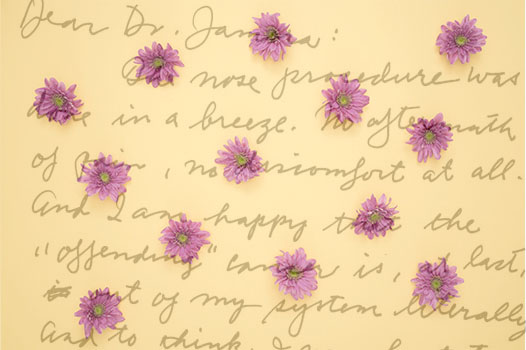 Dear Dr.
nose procedure was
done in a breeze. No aftermath
of pain, no discomfort at all.
And I am happy that the
"offending" cancer is, at last,
out of my system literally
And to think, I